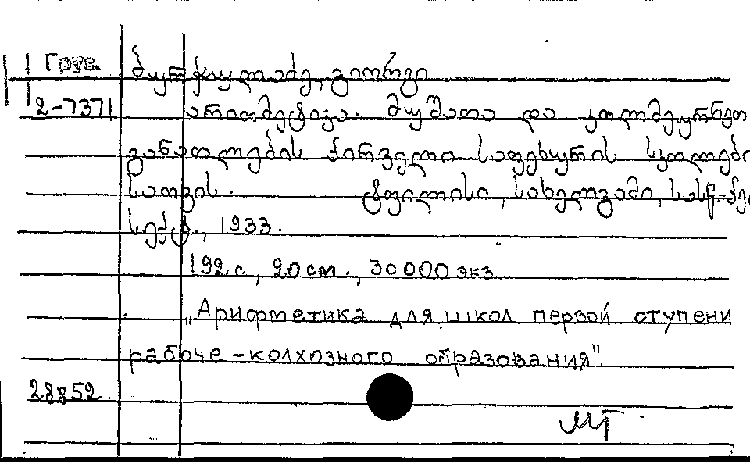 Груз.
2-7371
გიორგი
არითმეტიკა. მუშათა და კოლმეურნეთ
განათლების პირველი საფეხურის სკოლები
სათვის. ტფილისი, სახელგამი,
სექტ., 1933.
192 с., 20 см., 30000 экз.
„Арифметика для школ первой ступени
рабоче-колхозного образования"
МГ